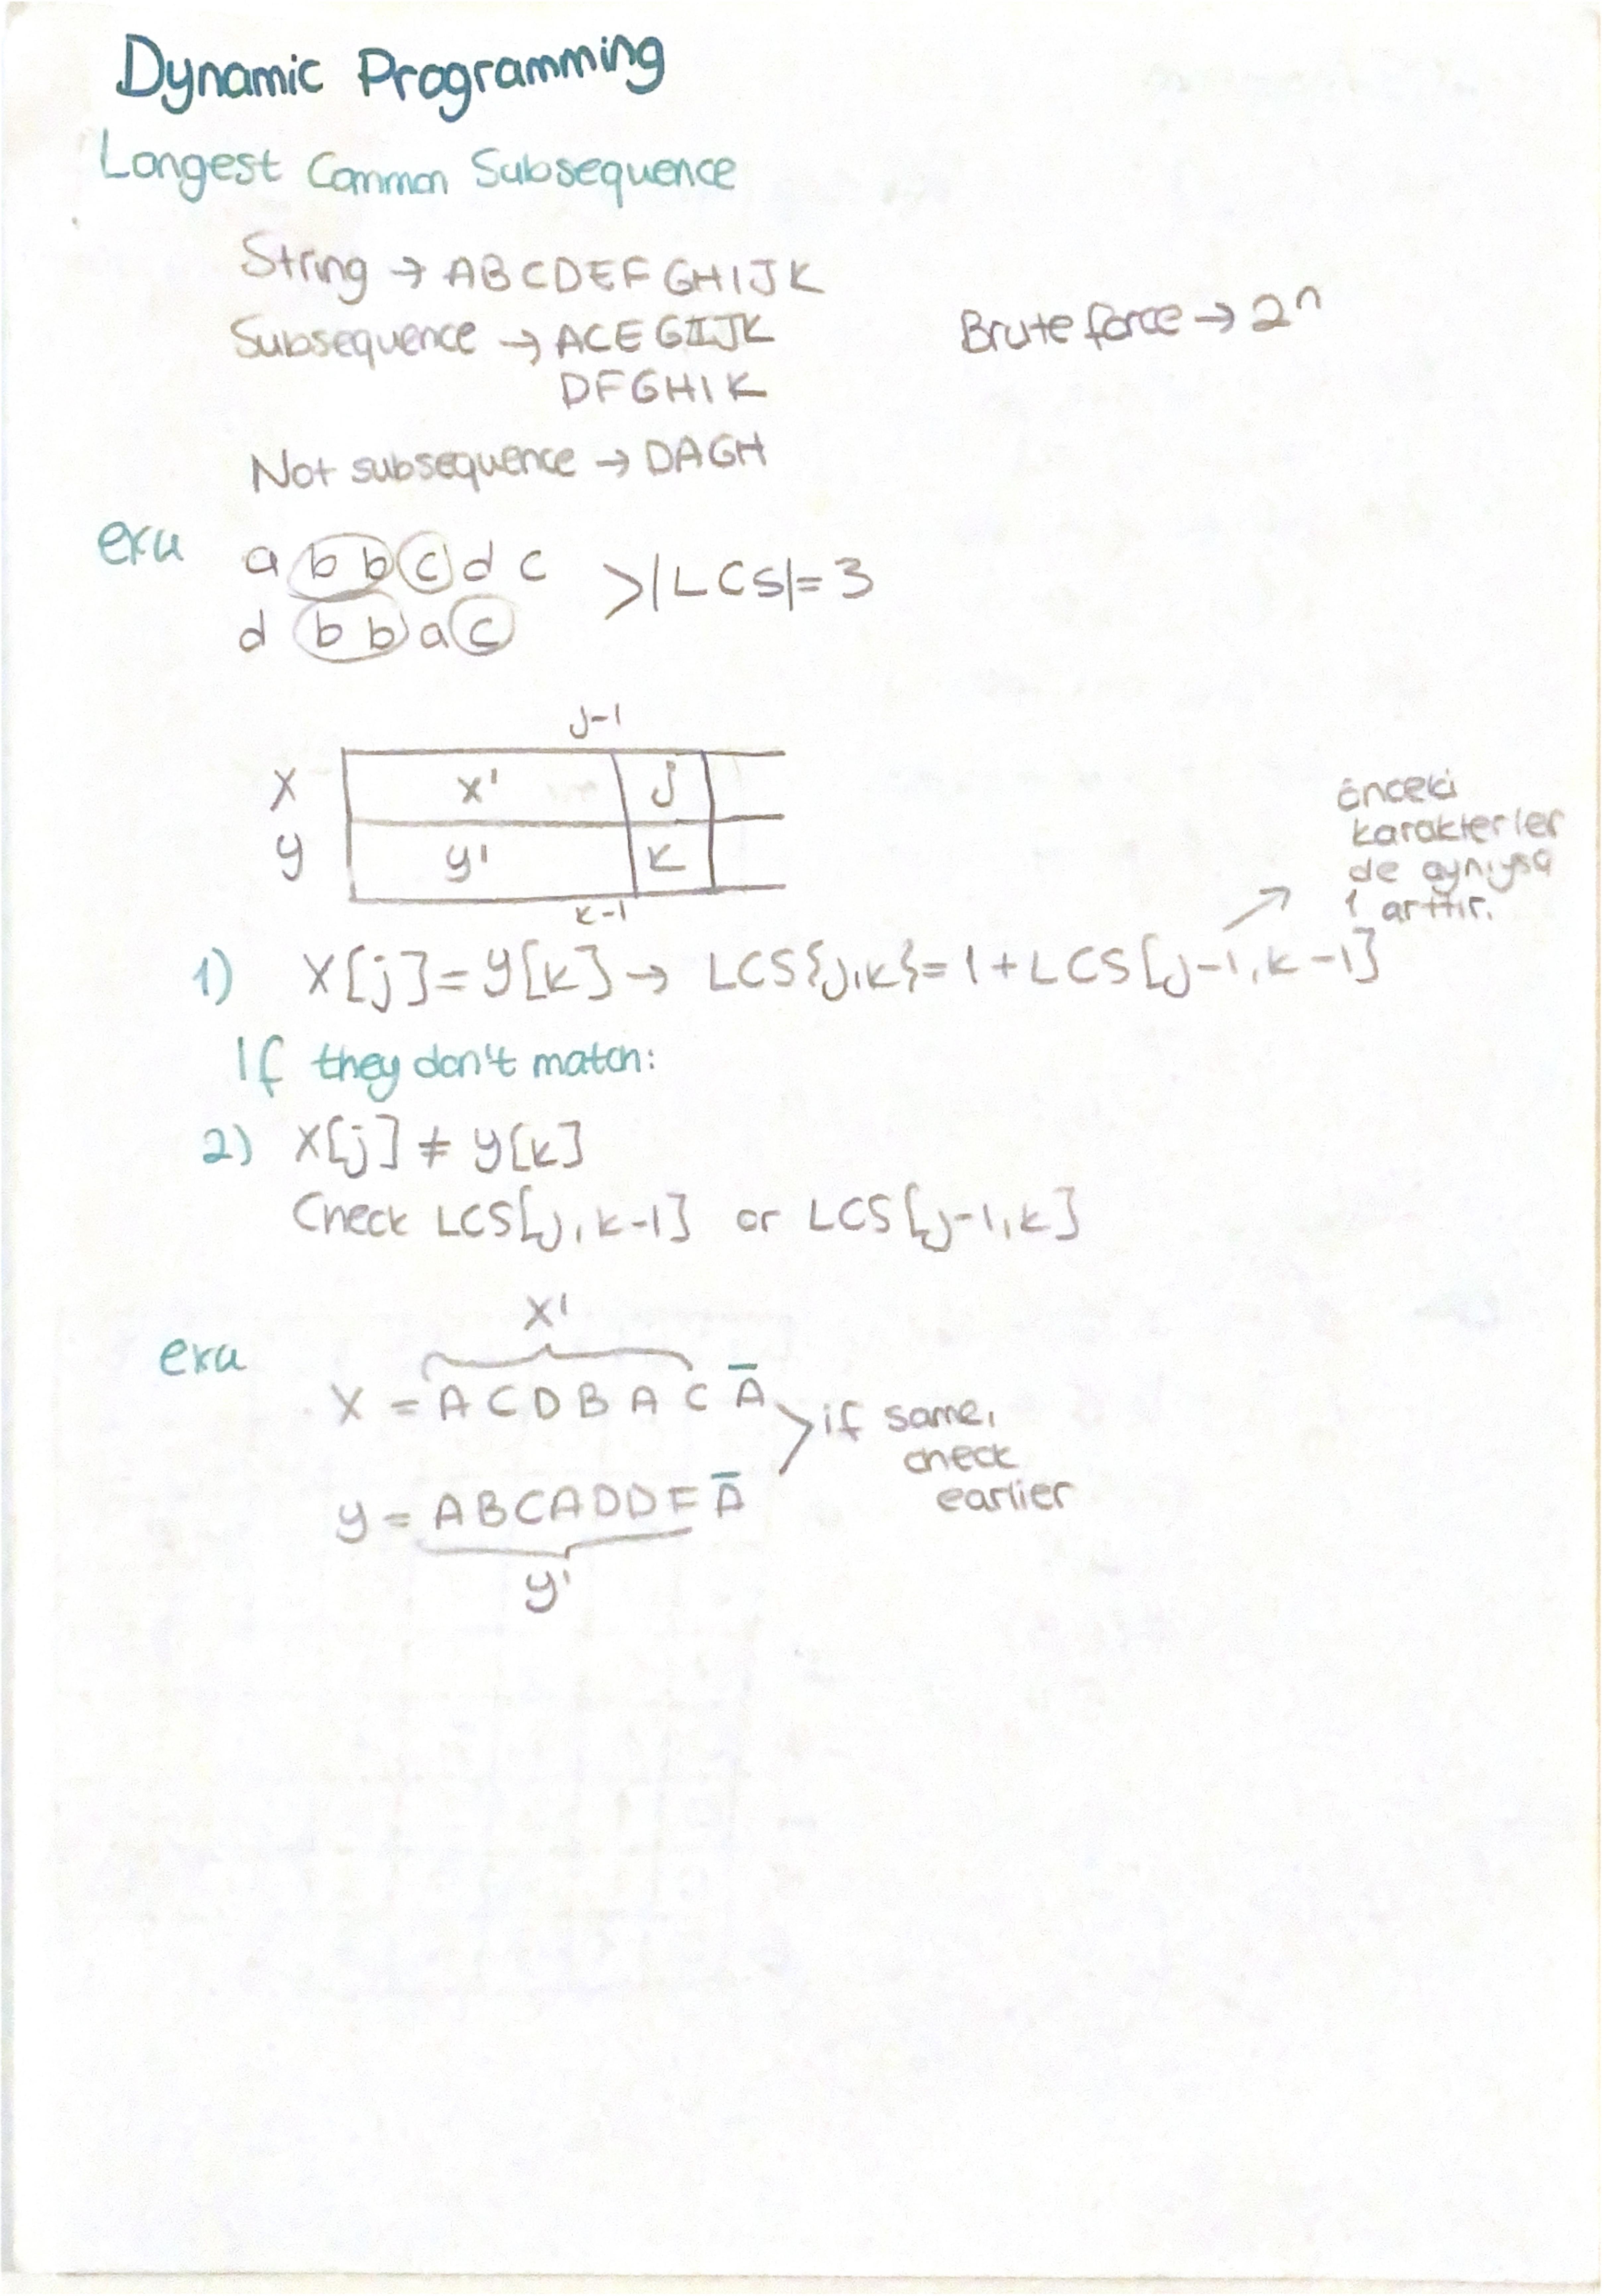 Dynamic Programming
Longest Common Subsequence
String → ABCDEFGHIJK
Subsequence → ACEGIJK
DFGHIK
Brute force → 2ⁿ
Not subsequence → DAGH
exu
a b b c d c
d b b a c
>|LCS|= 3
j-1
X x' j
y y' k
k-1
önceki
karakterler
de aynıysa
1 arttır.
1) X[j]=y[k] → LCS{j,k}=1+LCS[j-1,k-1]
If they don't match:
2) X[j] ≠ y[k]
Check LCS[j,k-1] or LCS[j-1,k]
X'
exu
X = A C D B A C A̅
> if same,
check
earlier
y = A B C A D D F A̅
y'